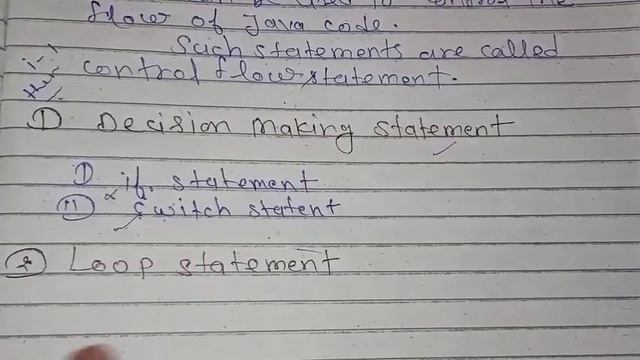 be used to control the
flow of Java code.
Such statements are called
control flow statement.
1) Decision making statement
1) if statement
11) Switch statent
2) Loop statement